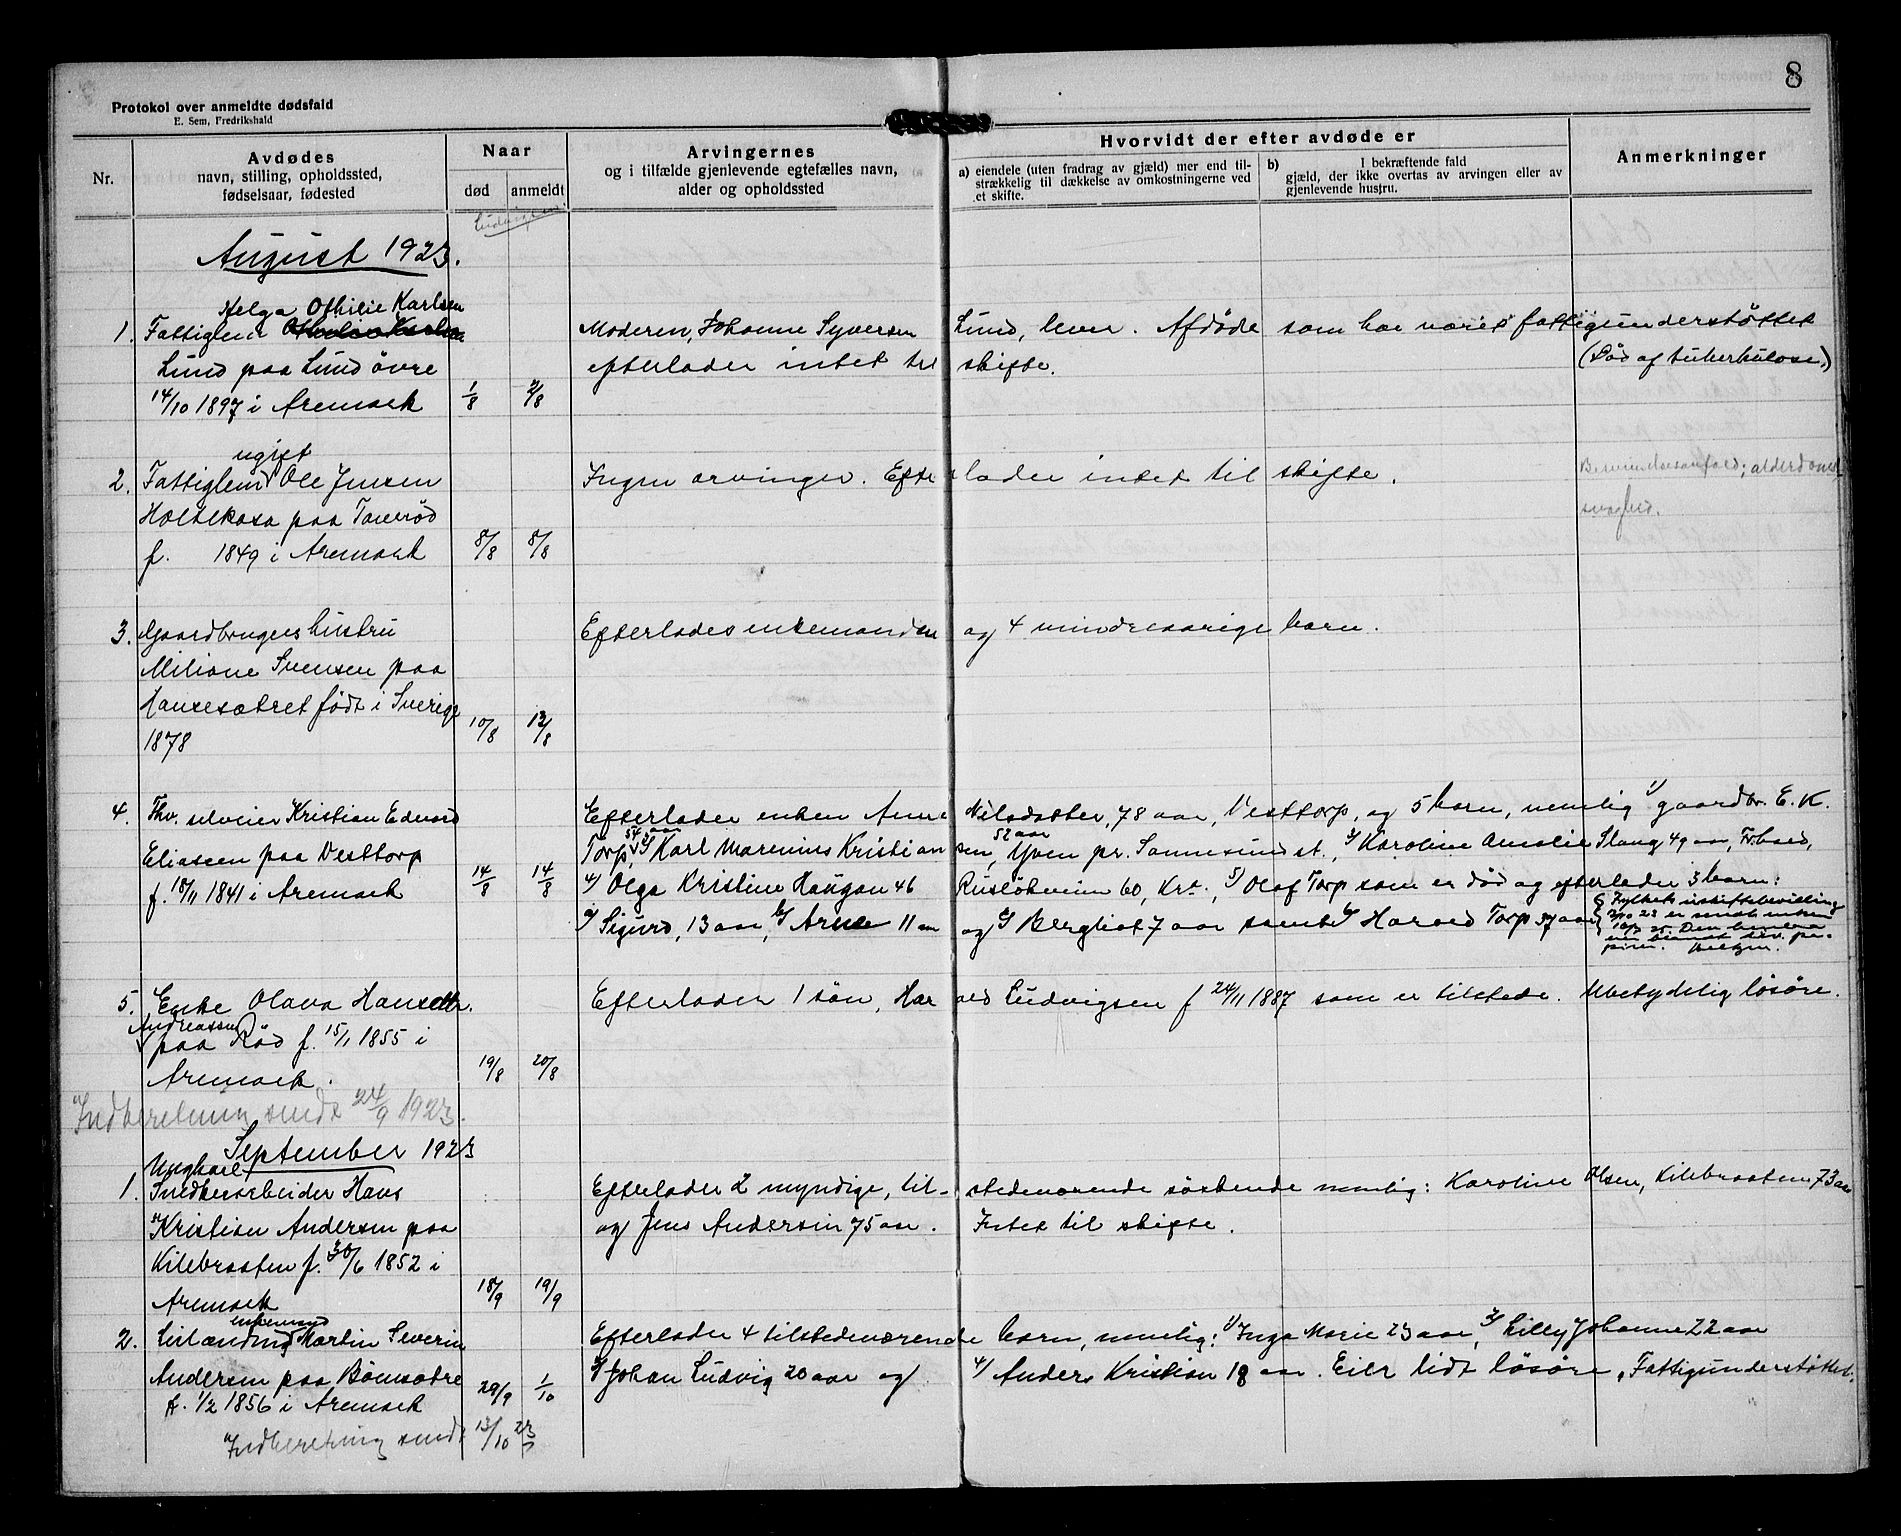 8
Protokol over anmeldte dødsfald
E. Sem, Fredrikshald
Nr.
Avdødes
navn, stilling, opholdssted,
fødselsaar, fødested
Naar
død
anmeldt
Arvingernes
og i tilfælde gjenlevende egtefælles navn,
alder og opholdssted
Hvorvidt der efter avdøde er
a) eiendele (uten fradrag av gjæld) mer end til-
strækkelig til dækkelse av omkostningerne ved
et skifte.
b) I bekræftende fald
gjæld, der ikke overtas av arvingen eller av
gjenlevende hustru.
Anmerkninger
August 1923.
Helga Othilie Karlsen
1. Fattiglem Moderen, Johanne Syversen Lund, lever. Afdøde som har været fattigunderstøttet
Lund paa Lund övre efterlader intet til skifte. (Död af tuberkulose.)
14/10 1897 i Aremark 1/8 2/8
ugift
2. Fattiglem Ole Jensen Ingen arvinger. Efterlader intet til skifte. alderdoms-
Holtekasa paa Tanerød svaghed.
f. 1849 i Aremark 8/8 8/8
3. Gaardbrugers hustru Efterlades enkemanden og 4 mindreaarige barn.
Miliane Svensen paa
Hansesætret født i Sverige 10/8 13/8
1878
4. Fhv. selveier Kristian Edvard Efterlader enken Anne Nilsdatter, 78 aar, Vesttorp, og 5 barn, nemlig 1/ gaardbr. E. K.
54 aar 52 aar
Eliassen paa Vesttorp Torp, 2/ Karl Marenius Kristiansen, Yven pr. Sannesund st., 3/ Karoline Amalie Slang 49 aar,
f. 18/11 1841 i Aremark 14/8 14/8 4/ Olga Kristine Haugan 46 Ruslökveien 60, Kra., 5/ Olaf Torp som er död og efterlader 3 barn:
a/ Sigurd, 13 aar, b/ Arne 11 aar og c/ Bergliot 7 aar samt 6/ Harald Torp 37 aar
Fylkets uskiftebevilling
er sendt enken
5. Enke Olava Hansdtr. Efterlader 1 sön, Harald Ludvigsen f 24/11 1887 som er tilstede. Ubetydelig lösöre.
Andreassen
paa Röd f. 15/1 1855 i
Aremark. 19/8 20/8
Indberetning sendt 24/9 1923.
September 1923
Ungkarl
1. Snedkerarbeider Hans Efterlader 2 myndige, tilstedeværende söskende nemlig: Karoline Olsen, Kilebraaten 73 aar
Kristian Andersen paa og Jens Andersen 75 aar. Intet til skifte.
Kilebraaten f. 30/6 1852 i
Aremark 18/9 19/9
enkemand
2. Leilænding Martin Severin Efterlader 4 tilstedeværende barn, nemlig: 1/ Inga Marie 23 aar, 2/ Lilly Johanne 22 aar
Andersen paa Bönsætre 3/ Johan Ludvig 20 aar og 4/ Anders Kristian 18 aar. Eier lidt lösöre, Fattigunderstöttet.
f. 1/2 1856 i Aremark 29/9 1/10
Indberetning sendt 13/10 23